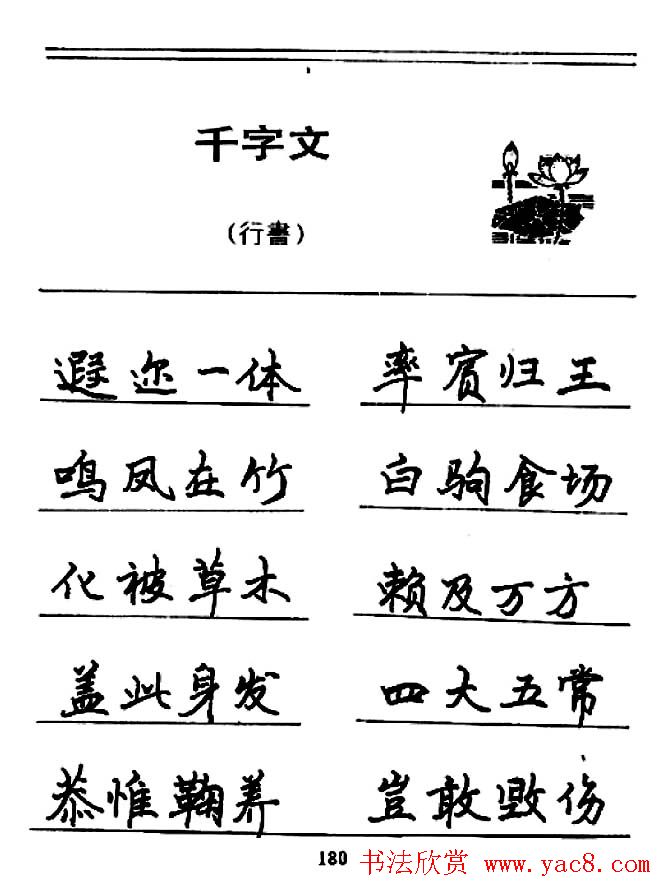 千字文
(行書)
遐迩一体 率宾归王
鸣凤在竹 白驹食场
化被草木 赖及万方
盖此身发 四大五常
恭惟鞠养 岂敢毁伤
180 书法欣赏 www.yac8.com